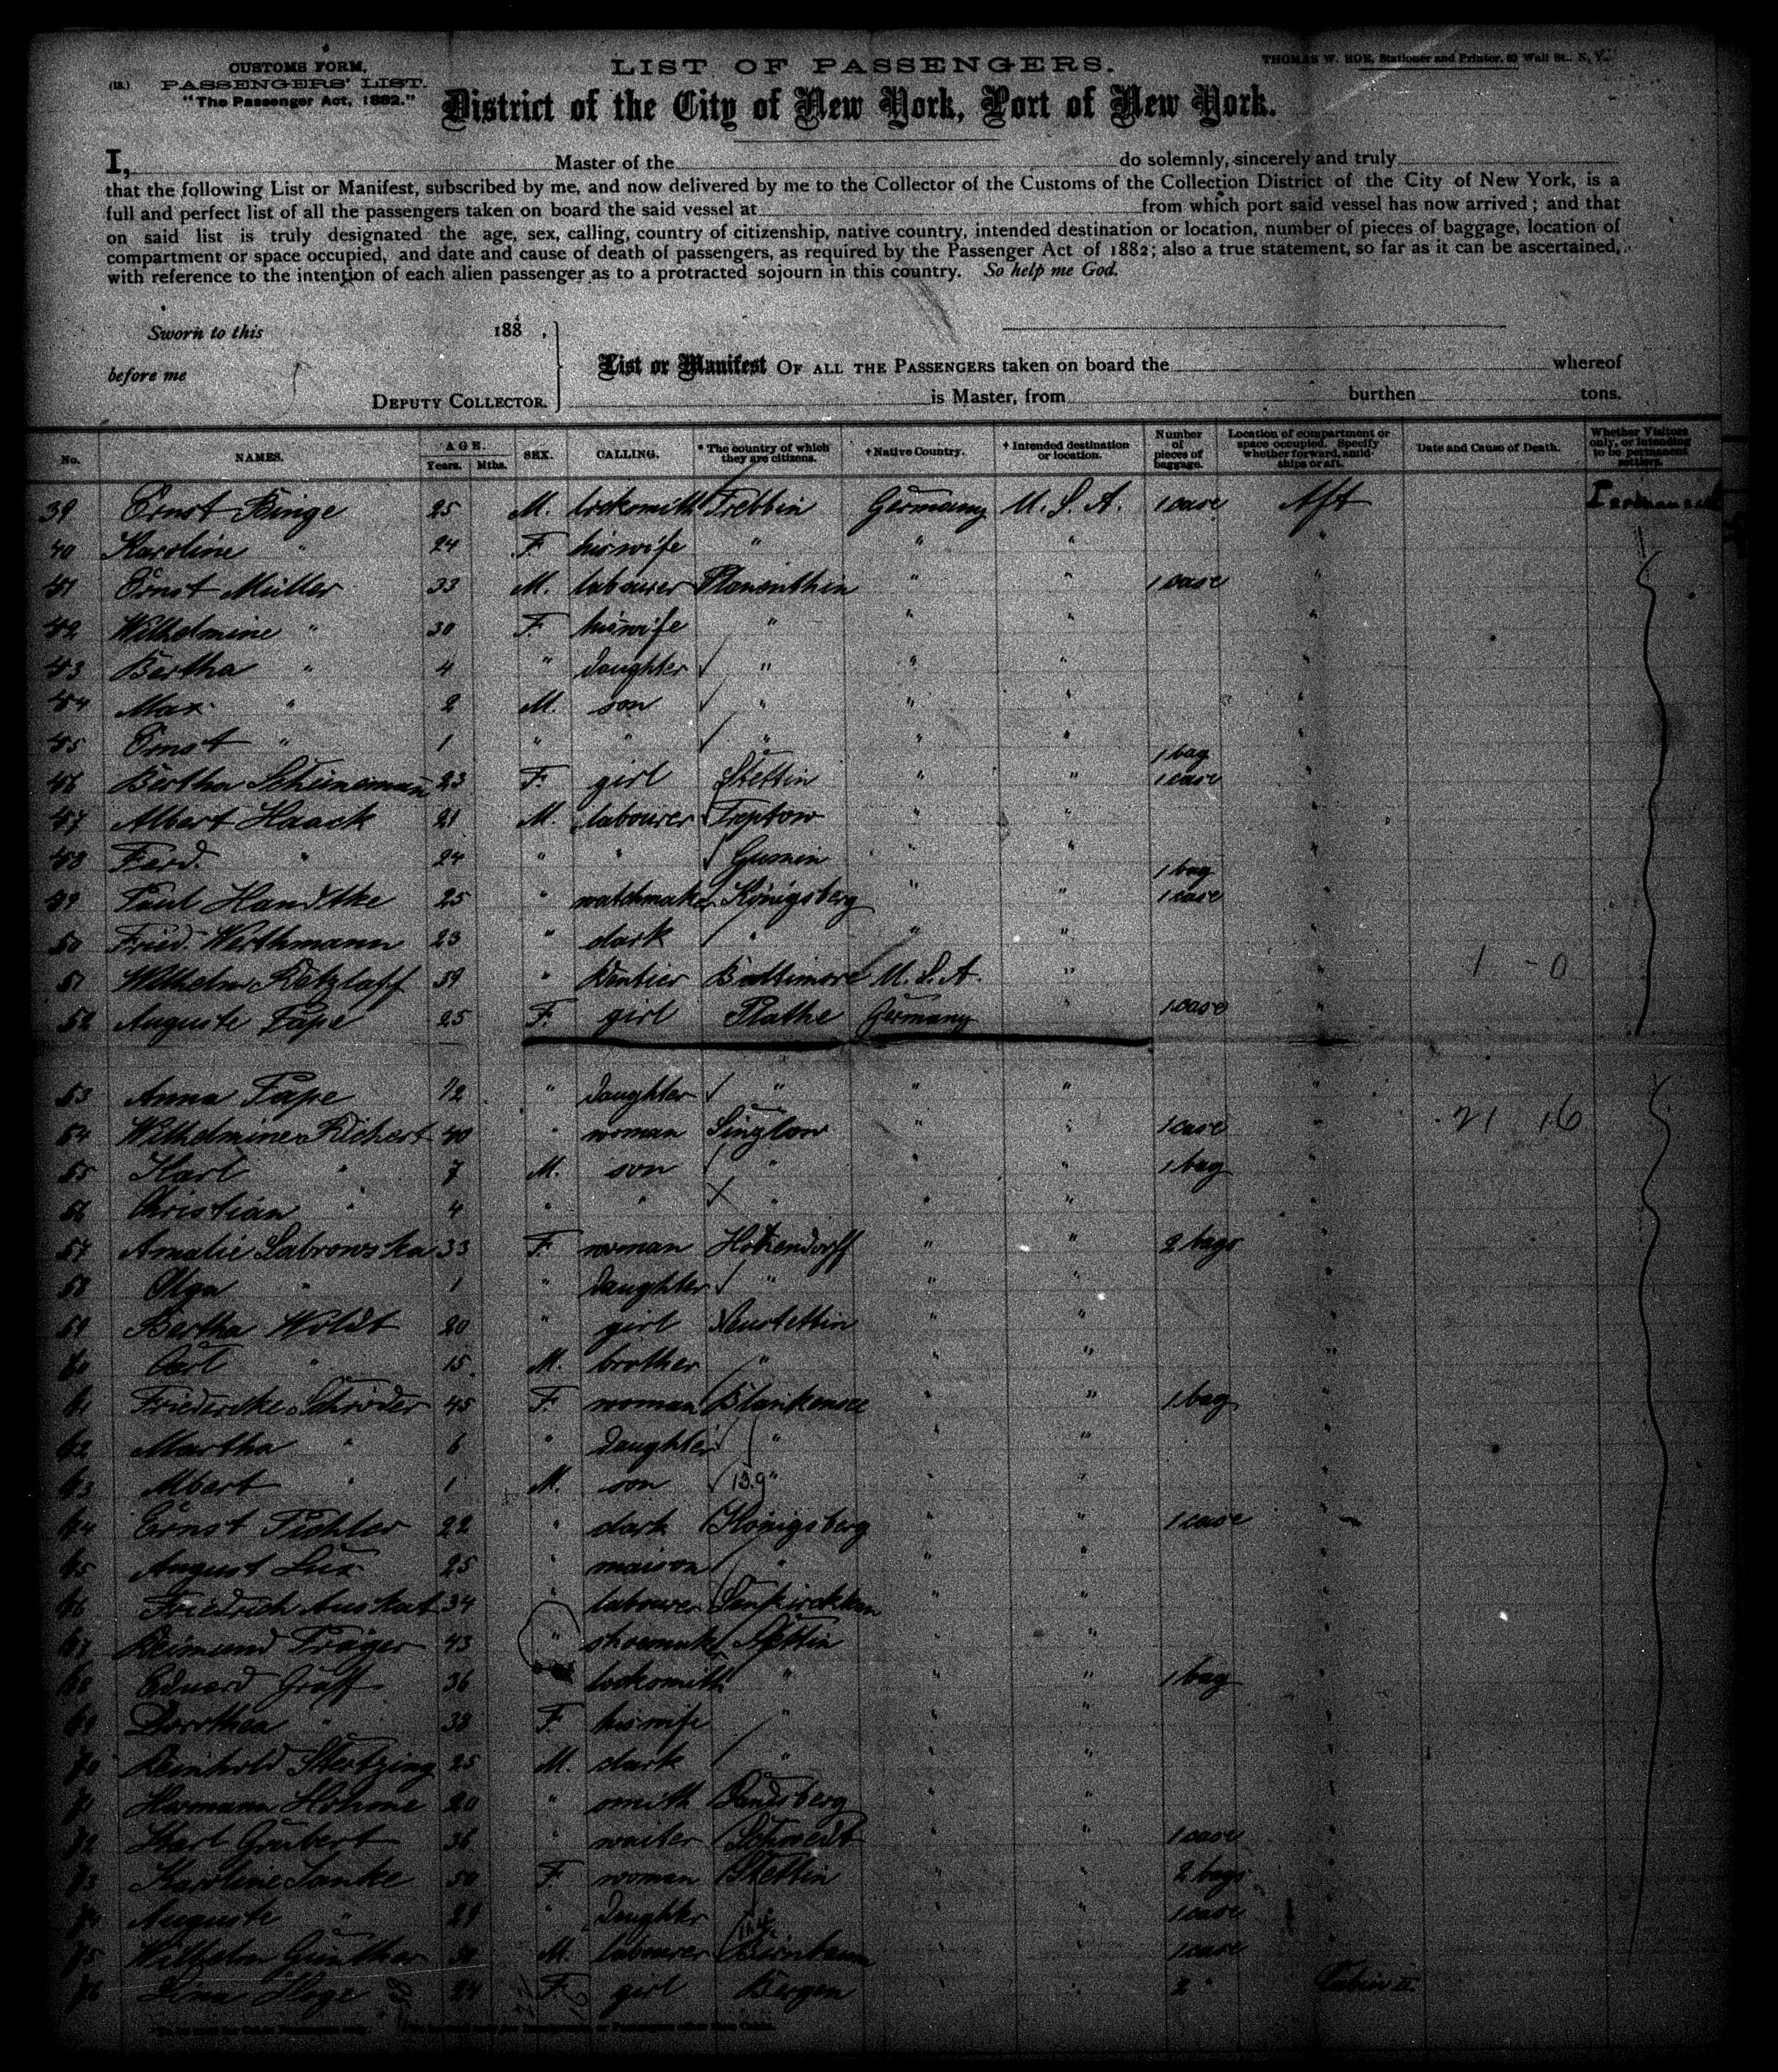 CUSTOMS FORM.
LIST OF PASSENGERS.
THOMAS W. ROE, Stationer and Printer, 63 Wall St., N. Y.
(18.) PASSENGERS' LIST.
"The Passenger Act, 1882."
District of the City of New York, Port of New York.
I, Master of the do solemnly, sincerely and truly
that the following List or Manifest, subscribed by me, and now delivered by me to the Collector of the Customs of the Collection District of the City of New York, is a
full and perfect list of all the passengers taken on board the said vessel at from which port said vessel has now arrived; and that
on said list is truly designated the age, sex, calling, country of citizenship, native country, intended destination or location, number of pieces of baggage, location of
compartment or space occupied, and date and cause of death of passengers, as required by the Passenger Act of 1882; also a true statement, so far as it can be ascertained,
with reference to the intention of each alien passenger as to a protracted sojourn in this country. So help me God.
Sworn to this 188 ,
before me
List or Manifest OF ALL THE PASSENGERS taken on board the whereof
DEPUTY COLLECTOR.
is Master, from burthen tons.
No. NAMES. AGE. Years. Mths. SEX. CALLING. * The country of which they are citizens. † Native Country. † Intended destination or location. Number of pieces of baggage. Location of compartment or space occupied. Specify whether forward, amidships or aft. Date and Cause of Death. Whether Visitors only, or intending to be permanent settlers.
39 Ernst Binge 25 M. locksmith Trebbin Germany U.S.A. 1 case Aft
40 Karoline " 24 F. his wife " " " "
41 Ernst Müller 33 M. labourer " " 1 case "
42 Wilhelmine " 30 F. his wife " " " "
43 Bertha " 4 " daughter " " " "
44 Max " 2 M. son " " " "
45 Ernst " 1 " " " " " "
1 bag
46 Bertha Scheunemann 23 F. girl Stettin " " 1 case "
47 Albert Haack 21 M. labourer Treptow " " "
48 Ferd. " 24 " " Gumin " " "
1 bag
49 Paul Handtke 25 " watchmaker Königsberg " " 1 case "
50 Fried. Werthmann 23 " clark " " " "
51 Wilhelm Retzlaff 59 " Rentier Baltimore U.S.A. " " 1 - 0
52 Auguste Pape 25 F. girl Plathe Germany " 1 case "
53 Anna Pape " daughter " " " "
54 Wilhelmine Richert 40 " woman " " 1 case " 21 16
55 Karl " 7 M. son " " " 1 bag "
56 Christian " 4 " " " " " "
57 Amalie Labrowska 33 F. woman Hotzendorff " " 2 bags "
58 Olga " 1 " daughter " " " "
59 Bertha Woldt 20 " girl Neustettin " " "
60 Carl " 15 M. brother " " " "
61 Friedericke Schröder 45 F. woman Blankensee " " 1 bag "
62 Martha " 6 " daughter " " " "
63 Albert " 1 M. son " " " "
64 Ernst Pichler 22 " clark Königsberg " " 1 case "
65 August Lux 25 " maison " " " "
66 Friedrich Auskat 34 " labourer " " "
67 Reimund Träger 43 " shoemaker Stettin " " "
68 Eduard Graff 36 locksmith " " " 1 bag "
69 Dorothea " 38 F. his wife " " " "
70 Reinhold Stertzing 25 M. clark " " " "
71 Hermann Hohme 20 " smith Landsberg " " "
72 Karl Grubert 36 " waiter Schwedt " " 1 case "
73 Karoline Janke 50 F. woman Stettin " " 2 bags "
74 Auguste " 21 " daughter 1 case "
75 Wilhelm Günther M. labourer Birnbaum " " 1 case "
76 24 F. girl Bergen " " 2 " Cabin II.